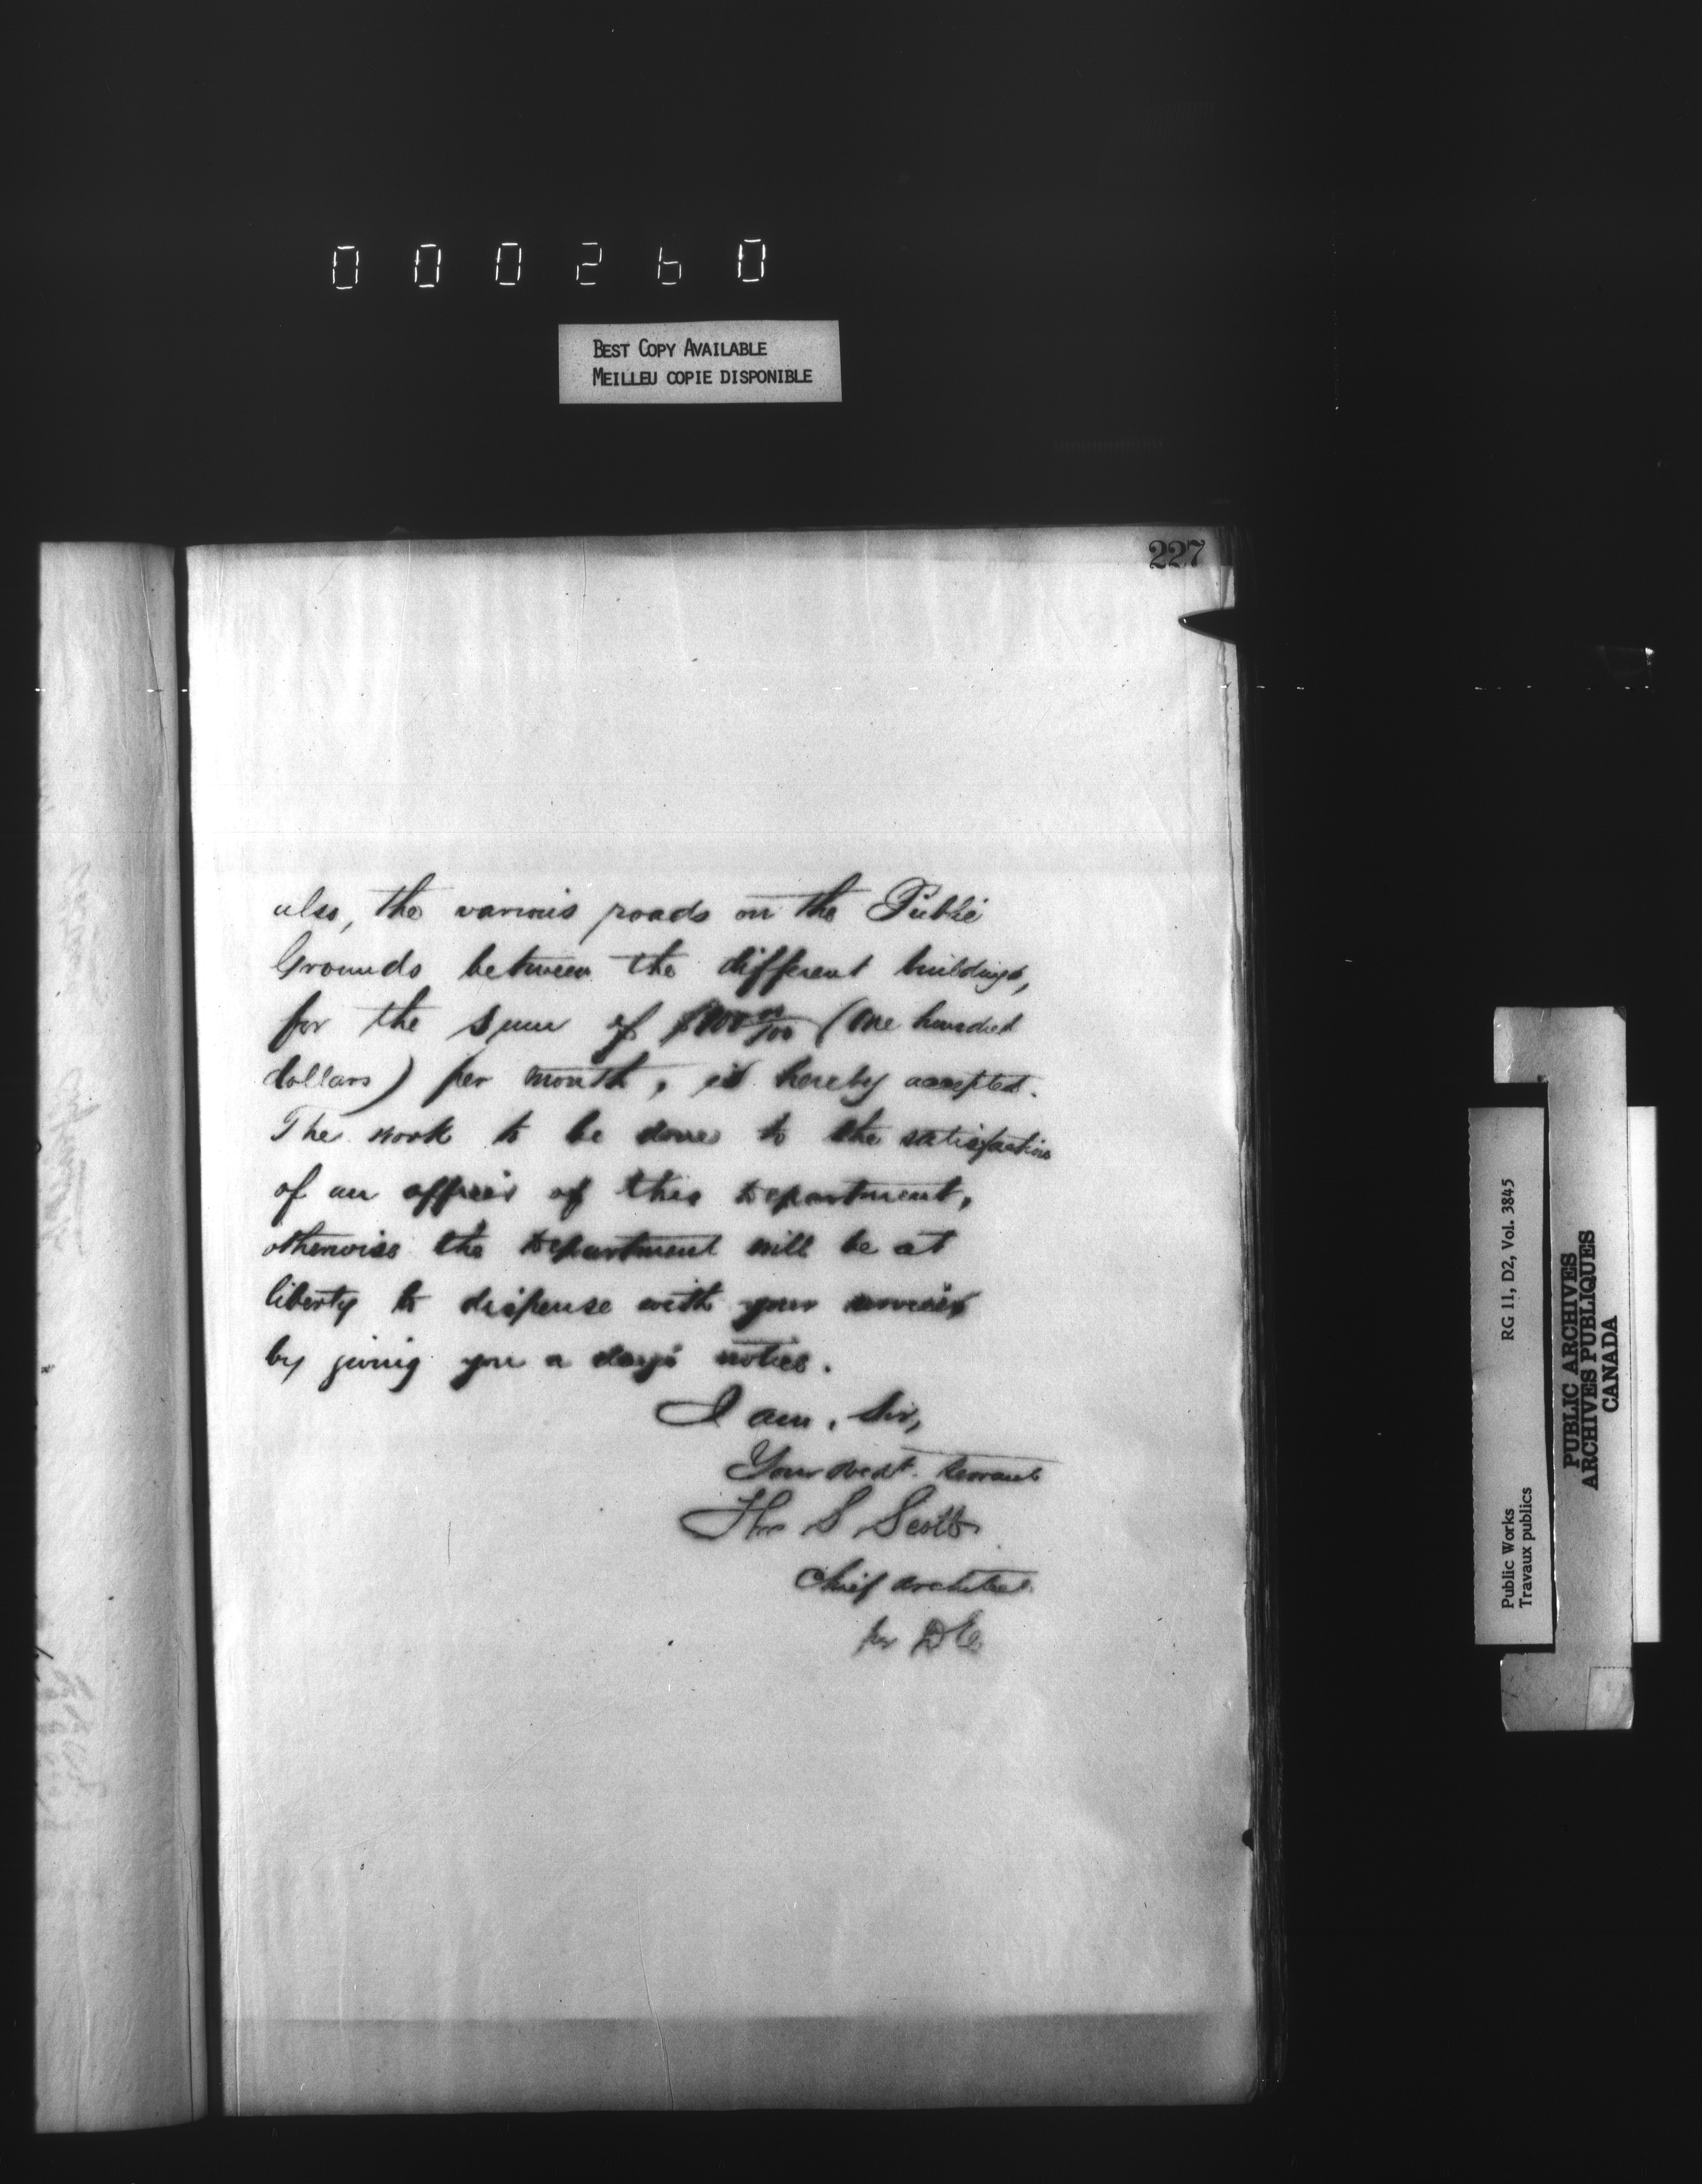 000260
BEST COPY AVAILABLE
MEILLEU COPIE DISPONIBLE
227
also, the various roads on the Public
Grounds between the different buildings,
for the sum of $100 00/100 (One hundred
dollars) per month, is hereby accepted.
The work to be done to the satisfaction
of an officer of this Department,
otherwise the Department will be at
liberty to dispense with your services
by giving you a days notice.
I am, Sir,
Your obedt. Servant
Thos S Scott
Chief Architect
per DE
Public Works
Travaux publics
RG 11, D2, Vol. 3845
PUBLIC ARCHIVES
ARCHIVES PUBLIQUES
CANADA